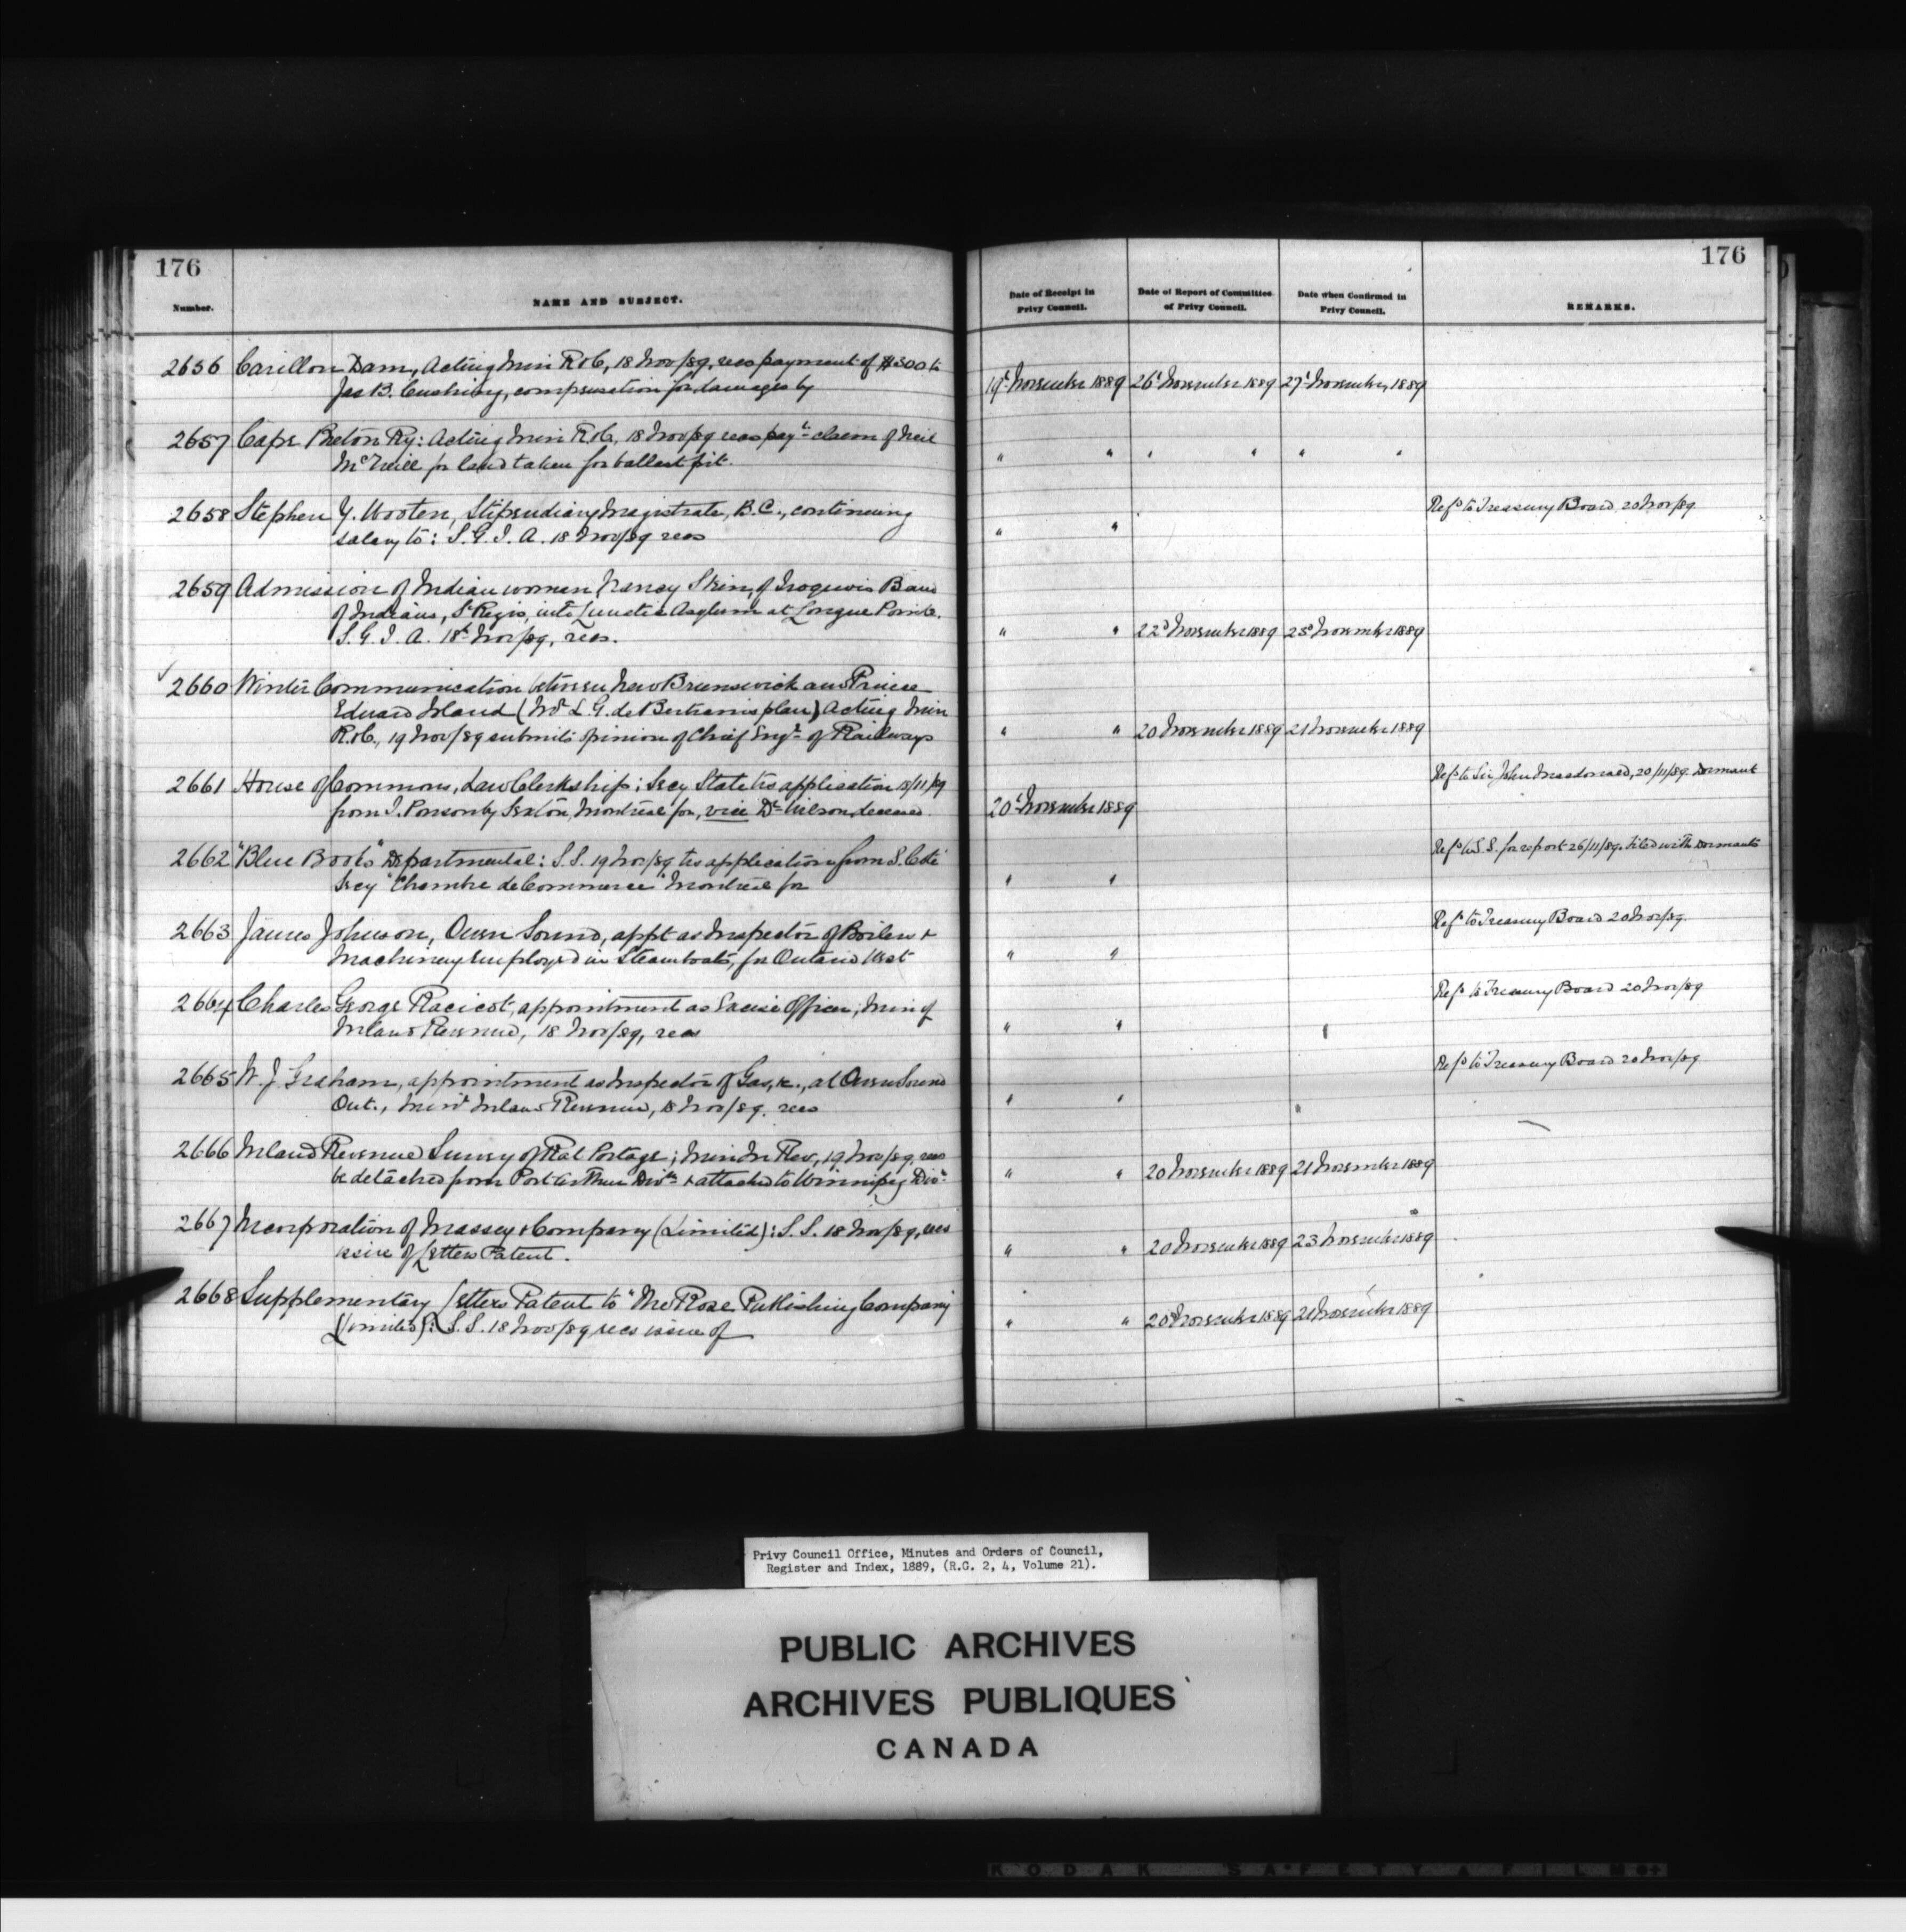 176
176
Number.
NAME AND SUBJECT.
Date of Receipt in Privy Council.
Date of Report of Committee of Privy Council.
Date when Confirmed in Privy Council.
REMARKS.
2656 Carillon Dam, Acting Min R & C, 18 Nov/89, recs payment of $300 to
Jas B. Cushing, compensation for damages by
19t November 1889 26t November 1889 27t November 1889
2657 Cape Breton Ry: Acting Min R & C, 18 Nov/89 recs payt claim of Neil
McNeill for land taken for ballast pit.
" " " " " "
2658 Stephen Y. Wooten, Stipendiary Magistrate, B.C., continuing
salary to: S.G.I.A. 18 Nov/89 recs
" "
Refd to Treasury Board 20 Nov/89
2659 Admission of Indian woman Nancy Skin, of Iroquois Band
of Indians, St Regis, into Lunatic Asylum at Longue Pointe.
S.G.I.A. 18t Nov/89, recs.
" " 22d November 1889 25t November 1889
2660 Winter Communication between New Brunswick and Prince
Edward Island (Mr L.G. de Bertram's plan) Acting Min
R & C, 19 Nov/89 submits opinion of Chief Engr of Railways
" " 20 November 1889 21 November 1889
2661 House of Commons, Law Clerkship; Secy State trs application 18/11/89
from J. Ponsonby Sexton, Montreal for, vice Dr Wilson, deceased.
20t November 1889
Refd to Sir John Macdonald, 20/11/89. Dormant
2662 "Blue Books" Departmental: S.S. 19 Nov/89 trs application from S. Coté
Secy "Chambre de Commerce" Montreal for
" "
Refd to S.S. for report 26/11/89. Filed with Dormants
2663 James Johnson, Owen Sound, appt as Inspector of Boilers &
Machinery employed in Steamboats, for Ontario West
" "
Refd to Treasury Board 20 Nov/89.
2664 Charles George Racicot, appointment as Excise Officer; Min of
Inland Revenue, 18 Nov/89, recs
" "
Refd to Treasury Board 20 Nov/89
2665 W. J. Graham, appointment as Inspector of Gas, &c., at Owen Sound
Ont., Min of Inland Revenue, 18 Nov/89. recs
" "
Refd to Treasury Board 20 Nov/89
2666 Inland Revenue Survey of Rat Portage; Min In Rev, 19 Nov/89, recs
be detached from Port Arthur Divn & attached to Winnipeg Divn
" " 20 November 1889 21 November 1889
2667 Incorporation of Massey & Company (Limited): S.S. 18 Nov/89, recs
issue of Letters Patent.
" " 20 November 1889 23 November 1889
2668 Supplementary Letters Patent to "The Rose Publishing Company
(Limited): S.S. 18 Nov/89 recs issue of
" " 20 November 1889 21 November 1889
Privy Council Office, Minutes and Orders of Council,
Register and Index, 1889, (R.G. 2, 4, Volume 21).
PUBLIC ARCHIVES
ARCHIVES PUBLIQUES
CANADA
KODAK SAFETY A FILM